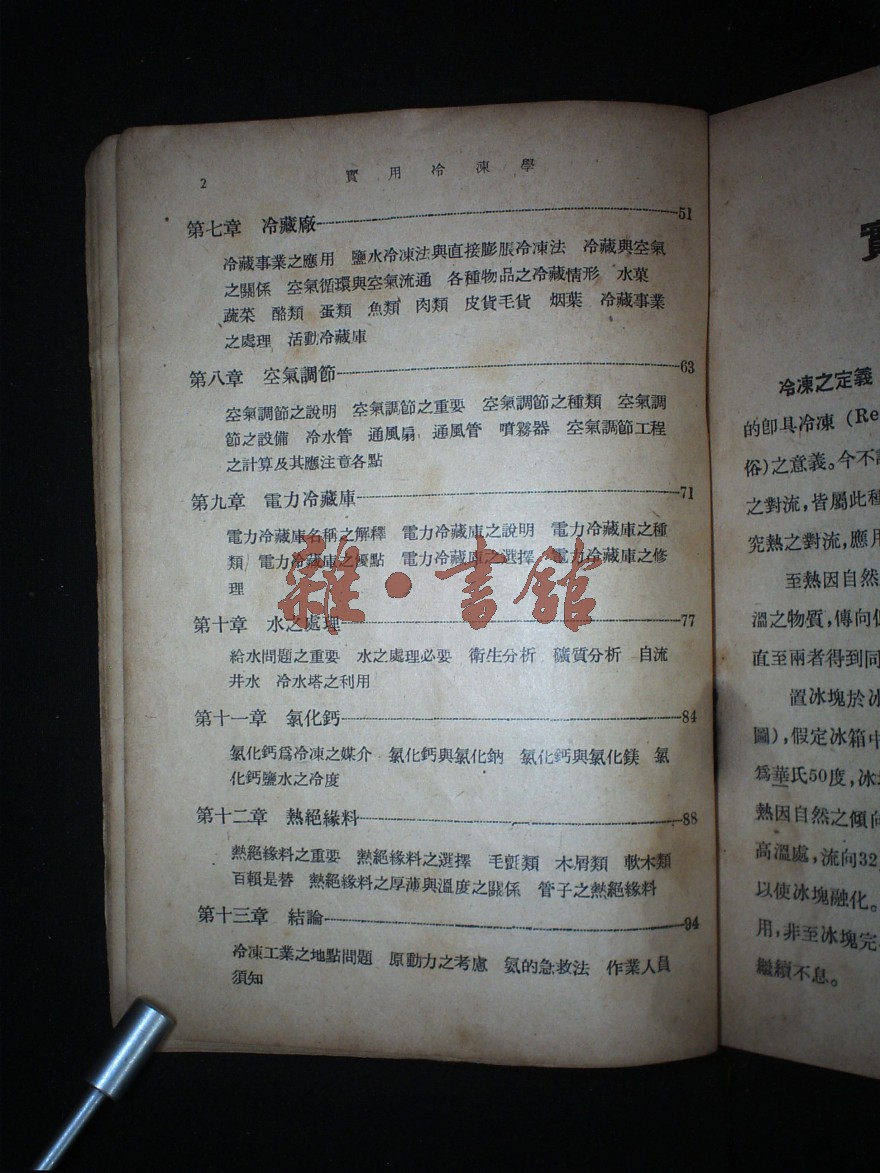 2
實用冷凍學
第七章 冷藏廠 51
冷藏事業之應用 鹽水冷凍法與直接膨脹冷凍法 冷藏與空氣
之關係 空氣循環與空氣流通 各種物品之冷藏情形 水菓
蔬菜 酪類 蛋類 魚類 肉類 皮貨毛貨 烟葉 冷藏事業
之處理 活動冷藏庫
第八章 空氣調節 63
空氣調節之說明 空氣調節之重要 空氣調節之種類 空氣調
節之設備 冷水管 通風扇 通風管 噴霧器 空氣調節工程
之計算及其應注意各點
第九章 電力冷藏庫 71
電力冷藏庫名稱之解釋 電力冷藏庫之說明 電力冷藏庫之種
類 電力冷藏庫之優點 電力冷藏庫之選擇 電力冷藏庫之修
理
雜·書館
第十章 水之處理 77
給水問題之重要 水之處理必要 衛生分析 礦質分析 自流
井水 冷水塔之利用
第十一章 氯化鈣 84
氯化鈣爲冷凍之媒介 氯化鈣與氯化鈉 氯化鈣與氯化鎂 氯
化鈣鹽水之冷度
第十二章 熱絕緣料 88
熱絕緣料之重要 熱絕緣料之選擇 毛氈類 木屑類 軟木類
百賴是替 熱絕緣料之厚薄與溫度之關係 管子之熱絕緣料
第十三章 結論 94
冷凍工業之地點問題 原動力之考慮 氨的急救法 作業人員
須知
冷凍之定義
的卽具冷凍 (Re
俗)之意義。今不
之對流，皆屬此種
究熱之對流，應用
至熱因自然
溫之物質，傳向
直至兩者得到同
置冰塊於冰
圖)，假定冰箱中
爲華氏50度，冰
熱因自然之傾向
高溫處，流向32
以使冰塊融化。
用，非至冰塊完
繼續不息。